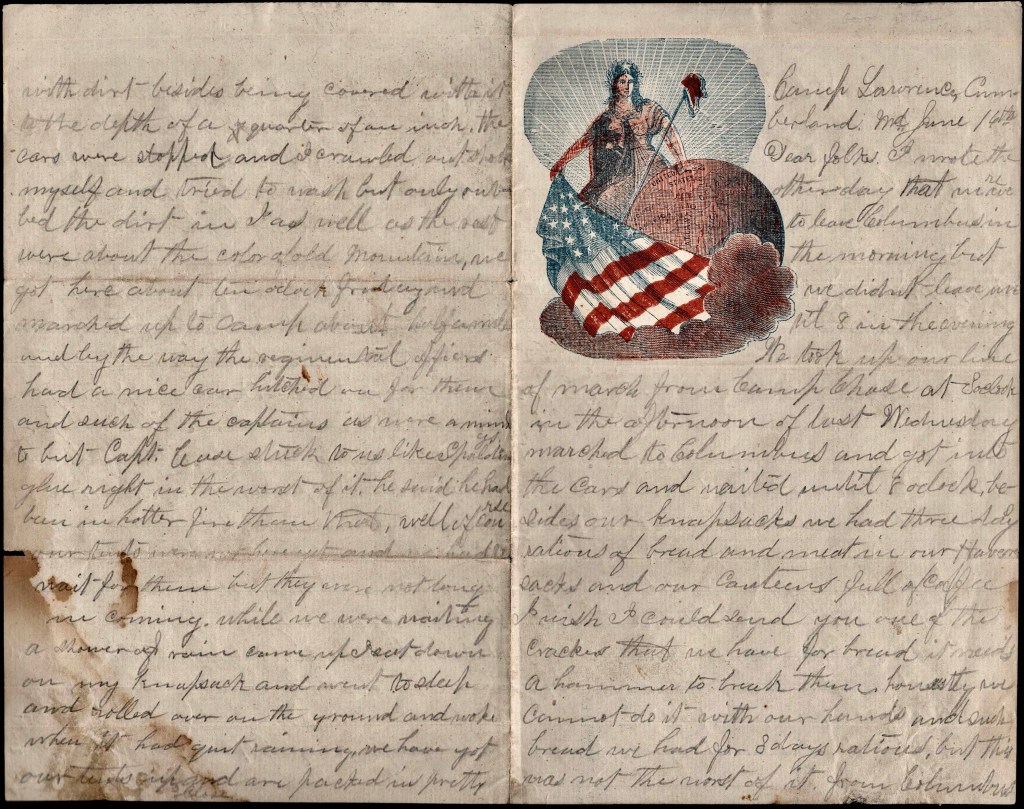 Camp Lawrence, Cum
berland. Md June 16th
Dear folks. I wrote the
other day that we were
to leave Columbus in
the morning but
we didnt leave un
til 8 in the evening
We took up our line
of march from Camp Chase at 3 oclock
in the afternoon of last Wednesday
marched to Columbus and got into
the cars and waited until 8 oclock, be-
sides our knapsacks we had three days
rations of bread and meat in our Haver
sacks and our Canteens full of Coffee
I wish I could send you one of the
crackers that we have for bread it needs
a hammer to break them, honestly we
cannot do it with our hands and such
bread we had for 3 days rations, but this
was not the worst of it. from Columbus
with dirt besides being covered with it
to the depth of a quarter of an inch. the
cars were stopped and I crawled out
myself and tried to wash but only rub-
bed the dirt in I as well as the rest
were about the color of old Mountain, we
got here about ten oclock friday and
marched up to camp about half a mile
and by the way the regimental officers
had a nice car hitched on for them
and such of the captains as were a mind
to but Capt. Case stuck to us like Spaldings
glue right in the worst of it. he said he had
been in hotter fire than that, well of course
our tents were not here yet and we had to
wait for them but they were not long
in coming. while we were waiting
a shower of rain came up I sat down
on my knapsack and went to sleep
and rolled over on the ground and woke
when it had quit raining, we have got
our tents up and are packed in pretty